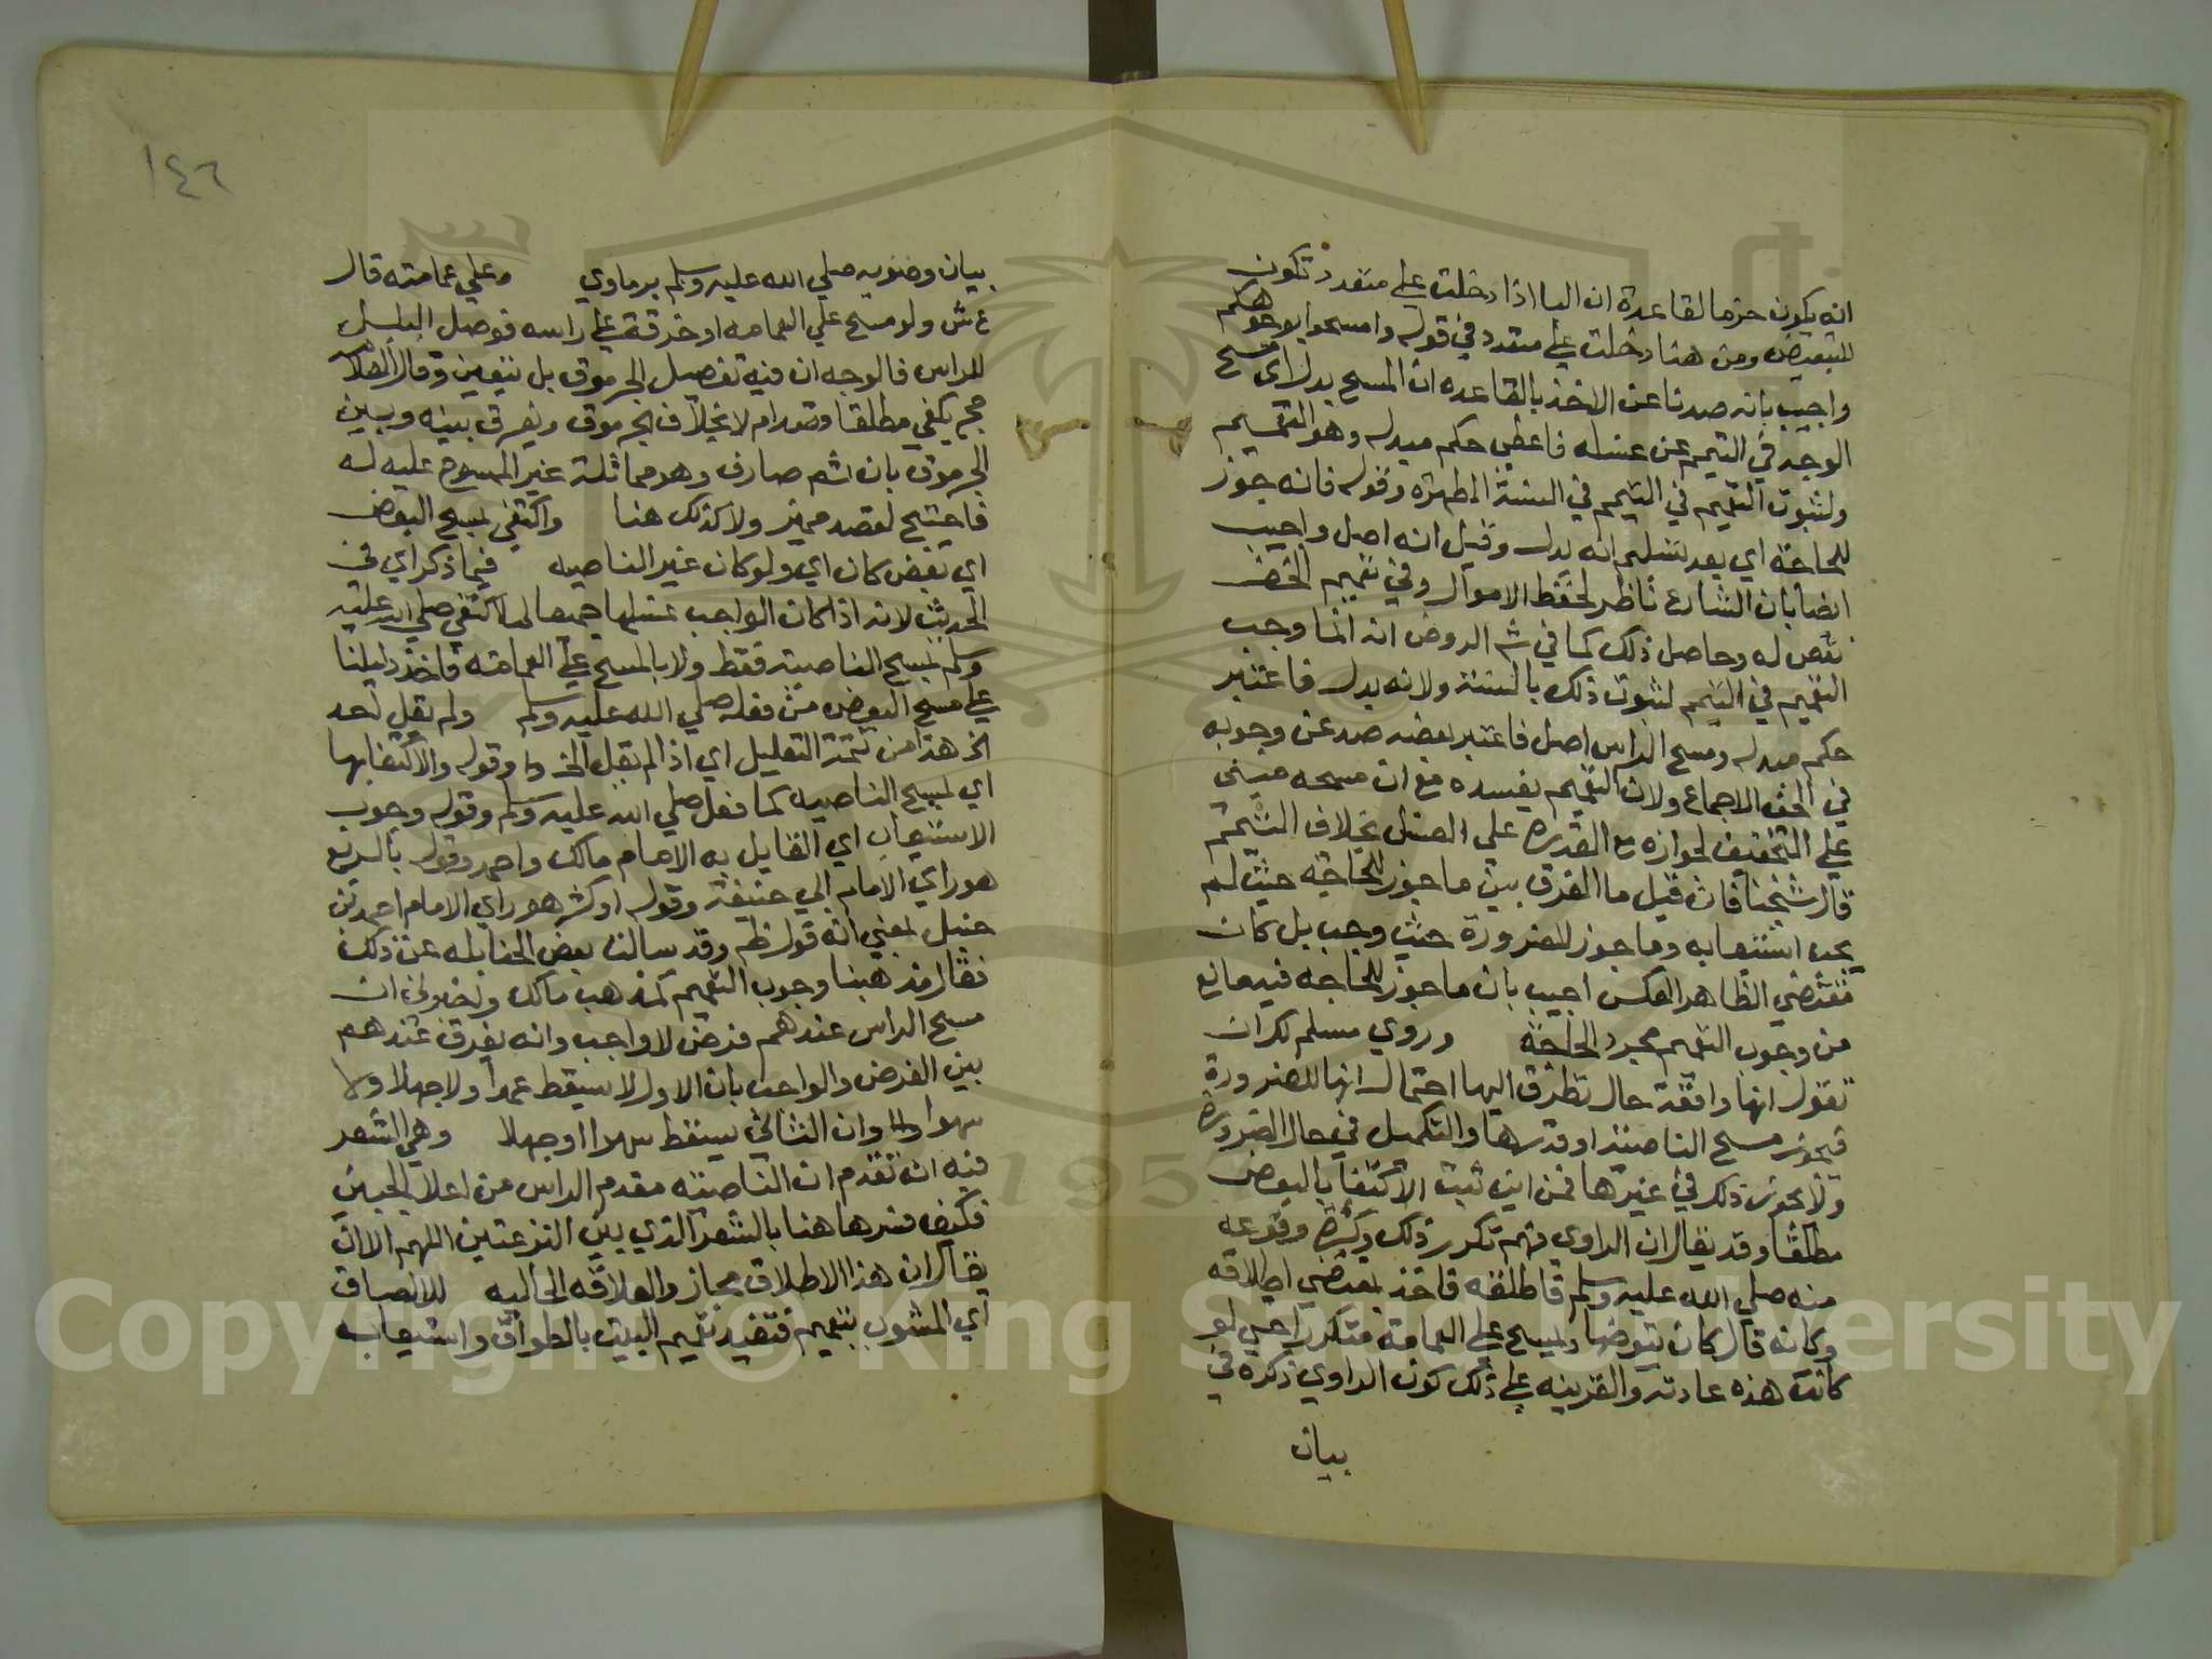 انه يكون خرما لقاعدة ان البا اذا دخلت علي متعدد تكون
للتبعيض ومن هنا دخلت علي متعدد في قوله وامسحوا بوجوهكم
واجيب بانه صدنا عن الاخذ بالقاعده ان المسح بدل اي مسح
الوجه في التيمم عن غسله فاعطي حكم مبدله وهو التعميم
ولثبوت التعميم في التيمم في السنة المطهرة وقوله فانه جوز
للحاجة اي بعد تسليم انه بدل وقيل انه اصل واجيب
ايضا بان الشارع ناظر لحفظ الاموال وفي تعميم الخف
نقص له وحاصل ذلك كما في شم الروض انه انما وجب
التعميم في التيمم لثبوت ذلك بالسنة ولانه بدل فاعتبر
حكم مبدله ومسح الراس اصل فاعتبر بعضه صد عن وجوبه
في الخف الاجماع ولان التعميم يفسده مع ان مسحه مبني
علي التخفيف لجوازه مع القدرة علي الغسل بخلاف التيمم
قال شيخنا فان قيل ما الفرق بين ما جوز للحاجة حيث لم
يجب استيعابه وما جوز للضرورة حيث وجب بل كان
مقتضي الظاهر العكس اجيب بان ما جوز للحاجه فيه مانع
من وجوب التعميم مجرد الحاجة وروي مسلم لك ان
تقول انها واقعة حال تطرق اليها احتمال انها للضرورة
فيجوز مسح الناصية او قدرها والتكميل في حال الضرورة
ولا يجوز ذلك في غيرها فمن اين ثبت الاكتفا بالبعض
مطلقا وقد يقال ان الراوي فهم تكرر ذلك وكثرة وقوعه
منه صلي الله عليه وسلم فاطلقه فاخذ بمقتضي اطلاقه
وكانه قال كان يتوضا ويمسح علي العمامة متكررا حتي لو
كانت هذه عادته والقرينه علي ذلك كون الراوي ذكره في
بيان
١٤٦
بيان وضوبه صلي الله عليه وسلم برماوي وعلي عمامته قال
ع ش ولو مسح علي العمامه او خرقة علي راسه فوصل البلل
للراس فالوجه ان فيه تفصيل الجرموق بل يتعين وقال العلامه
حجر يكفي مطلقا وقصد ام لا بخلاف الجرموق ويفرق بينه وبين
الجرموق بان ثم صارف وهو مماثلة غير الممسوح عليه له
فاحتيج لقصد مميز ولا كذلك هنا واكتفي بمسح البعض
اي بعض كان اي ولو كان غير الناصيه فيما ذكر اي في
الحديث لانه اذا كان الواجب غسلها جميعا لما اكتفي صلي الله عليه
وسلم بمسح الناصيه فقط ولا بالمسح علي العمامة فاخذ دليلنا
علي مسح البعض من فعله صلي الله عليه وسلم ولم يقل احد
الخ هذا من تتمة التعليل اي اذ لم يقل الخ وقوله والاكتفا بها
اي بمسح الناصيه كما فعل صلي الله عليه وسلم وقوله وجوب
الاستيعاب اي القايل به الامام مالك واحمد وقوله بالربع
هو راي الامام ابي حنيفة وقوله او كثر هو راي الامام احمد بن
حنبل بمعني انه قول له وقد سالنا بعض الحنابله عن ذلك
فقال مذهبنا وجوب التعميم كمذهب مالك واخبرني ان
مسح الراس عندهم فرض لا واجب وانه يفرق عندهم
بين الفرض والواجب بان الاول لا يسقط عمدا ولا جهلا ولا
سهوا وان الثاني يسقط سهوا او جهلا وهي الشعر
فيه انه تقدم ان الناصيته مقدم الراس من اعلا الجبين
فكيف فسرها هنا بالشعر الذي بين النزعتين اللهم الا ان
يقال ان هذا الاطلاق مجاز والعلاقه الحاليه للالصاق
اي المشوب بتعميم فتفيد تعميم البيت بالطواف واستيعابه